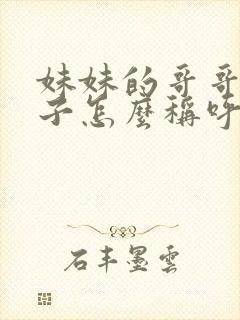 妹妹的哥哥
子怎麼稱呼
石丰墨雲